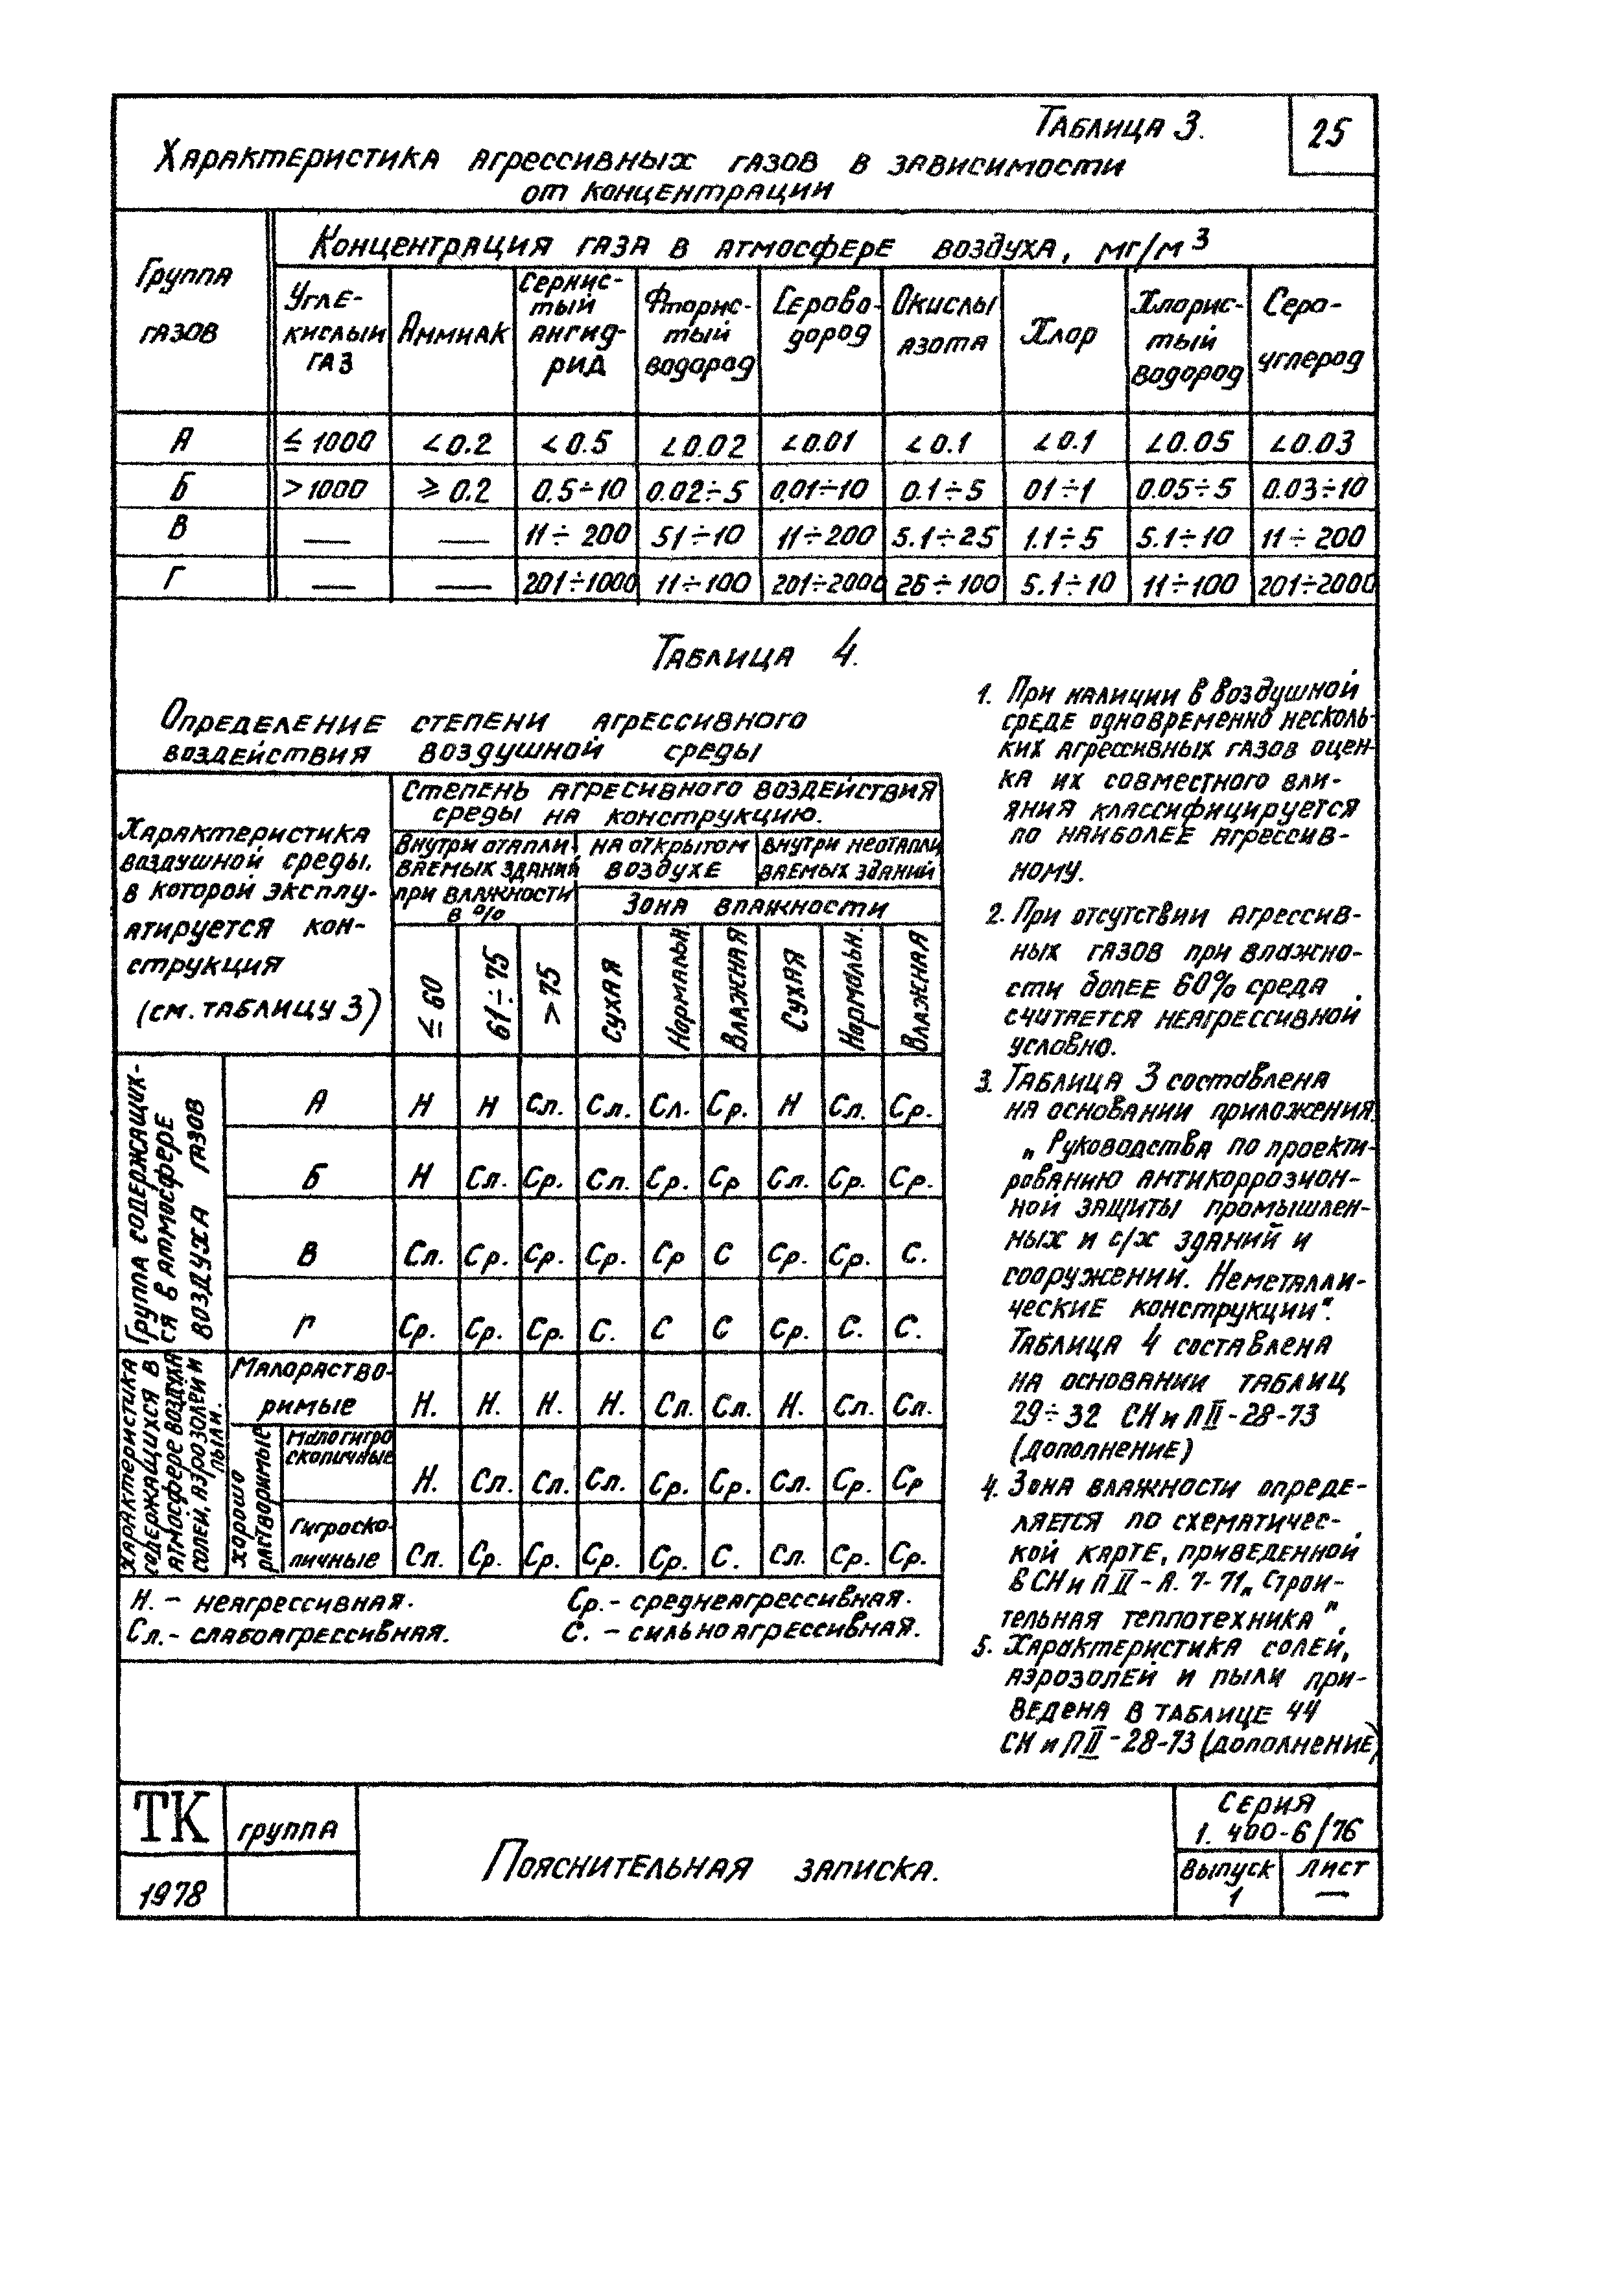 Таблица 3.
25
Характеристика агрессивных газов в зависимости
от концентрации
Группа
газов
Концентрация газа в атмосфере воздуха, мг/м³
Угле-
кислый
газ
Аммиак
Сернис-
тый
ангид-
рид
Фторис-
тый
водород
Серово-
дород
Окислы
азота
Хлор
Хлорис-
тый
водород
Серо-
углерод
А ≤ 1000 < 0.2 < 0.5 < 0.02 < 0.01 < 0.1 < 0.1 < 0.05 < 0.03
Б > 1000 ⩾ 0.2 0.5÷10 0.02÷5 0.01÷10 0.1÷5 01÷1 0.05÷5 0.03÷10
В — — 11÷200 51÷10 11÷200 5.1÷25 1.1÷5 5.1÷10 11÷200
Г — — 201÷1000 11÷100 201÷2000 26÷100 5.1÷10 11÷100 201÷2000
Таблица 4.
Определение степени агрессивного
воздействия воздушной среды
Характеристика
воздушной среды,
в которой эксплу-
атируется кон-
струкция
(см. таблицу 3)
Степень агресивного воздействия
среды на конструкцию.
Внутри отапли-
ваемых зданий
при влажности
в %
на открытом
воздухе
внутри неотапли
ваемых зданий
Зона влажности
≤ 60
61÷75
> 75
Сухая
Нормальн.
Влажная
Сухая
Нормальн.
Влажная
Группа содержащих-
ся в атмосфере
воздуха газов
А Н Н Сл. Сл. Сл. Ср. Н Сл. Ср.
Б Н Сл. Ср. Сл. Ср. Ср Сл. Ср. Ср.
В Сл. Ср. Ср. Ср. Ср С Ср. Ср. С.
Г Ср. Ср. Ср. С. С С Ср. С. С.
Характеристика
содержащихся в
атмосфере воздуха
солей, аэрозолей и
пыли.
Малораство-
римые Н. Н. Н. Н. Сл. Сл. Н. Сл. Сл.
хорошо
растворимые
Малогигро
скопичные Н. Сл. Сл. Сл. Ср. Ср. Сл. Ср. Ср
Гигроско-
пичные Сл. Ср. Ср. Ср. Ср. С. Сл. Ср. Ср.
Н. – неагрессивная. Ср.– среднеагрессивная.
Сл.– слабоагрессивная. С. – сильноагрессивная.
1. При наличии в воздушной
среде одновременно несколь-
ких агрессивных газов оцен-
ка их совместного вли-
яния классифицируется
по наиболее агрессив-
ному.
2. При отсутствии агрессив-
ных газов при влажно-
сти более 60% среда
считается неагрессивной
условно.
3. Таблица 3 составлена
на основании приложения
„ Руководства по проекти-
рованию антикоррозион-
ной защиты промышлен-
ных и с/х зданий и
сооружении. Неметалли-
ческие конструкции".
Таблица 4 составлена
на основании таблиц
29÷32 СН и П II-28-73
(дополнение)
4. Зона влажности опреде-
ляется по схематичес-
кой карте, приведенной
в СН и П II-А. 7-71„ Строи-
тельная теплотехника".
5. Характеристика солей,
аэрозолей и пыли при-
ведена в таблице 44
СН и П II-28-73 (дополнение)
ТК
группа
1978
Пояснительная записка.
Серия
1. 400-6/76
Выпуск
1
Лист
—